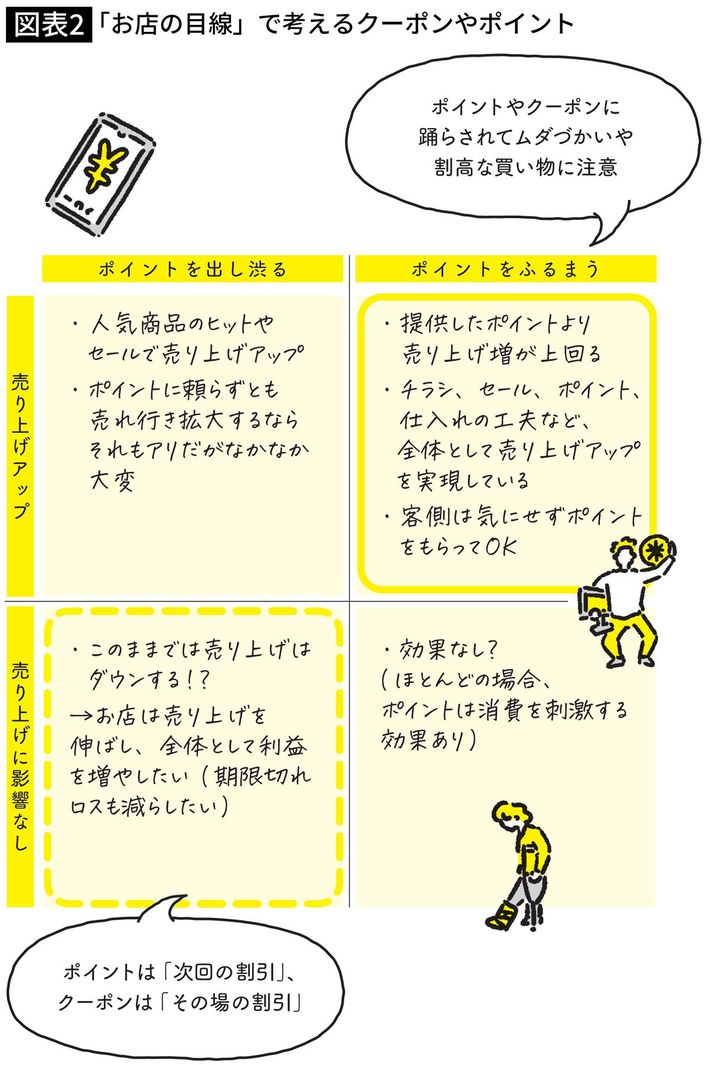 図表2「お店の目線」で考えるクーポンやポイント
ポイントやクーポンに
踊らされてムダづかいや
割高な買い物に注意
ポイントを出し渋る
ポイントをふるまう
売り上げアップ
・人気商品のヒットや
セールで売り上げアップ
・ポイントに頼らずとも
売れ行き拡大するなら
それもアリだがなかなか
大変
・提供したポイントより
売り上げ増が上回る
・チラシ、セール、ポイント、
仕入れの工夫など、
全体として売り上げアップ
を実現している
・客側は気にせずポイント
をもらってOK
売り上げに影響なし
・このままでは売り上げは
ダウンする!?
→お店は売り上げを
伸ばし、全体として利益
を増やしたい(期限切れ
ロスも減らしたい)
・効果なし?
(ほとんどの場合、
ポイントは消費を刺激する
効果あり)
ポイントは「次回の割引」、
クーポンは「その場の割引」